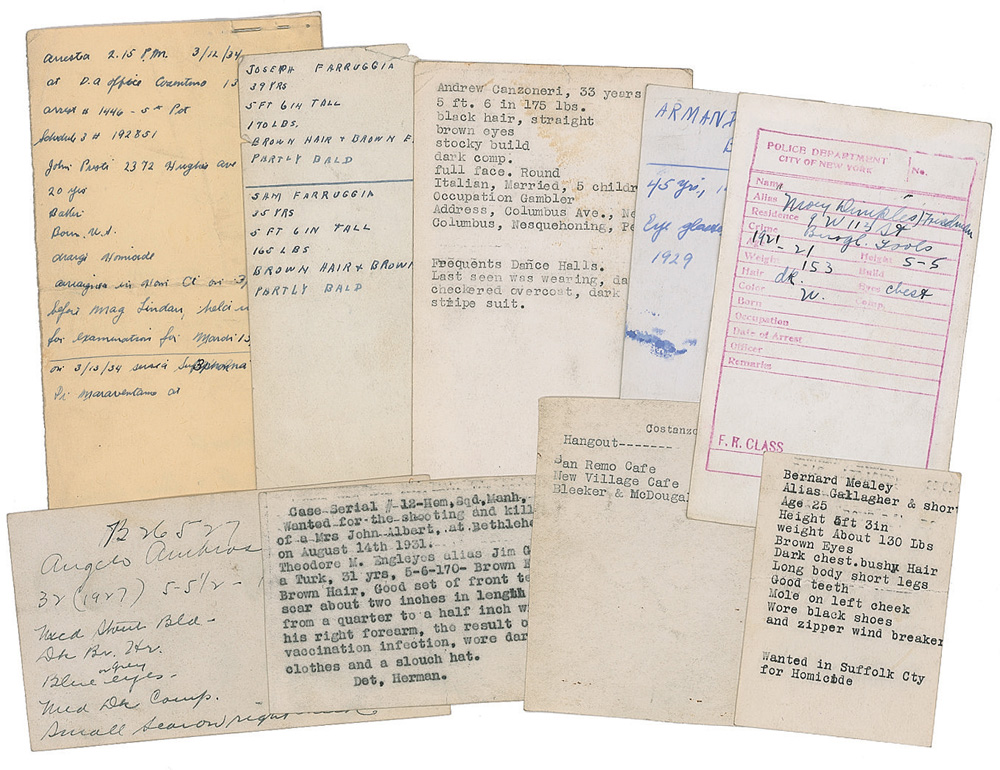 arrested 2.15 P.M. 3/12/34
at D.A office Cosentino 13
arrest # 1446 - 5th Pct
Schedule # 192851
John Presti 2372 Hughes ave
20 yrs
Born U.S.
charge Homicide
arraigned in Hom Ct on 3/
before Mag Lindau, held
for examination for March 15
on 3/13/34 served
at
JOSEPH FARRUGGIA
39 YRS
5 FT 6 1/4 TALL
170 LBS.
BROWN HAIR & BROWN E
PARTLY BALD
SAM FARRUGGIA
35 YRS
5 FT 6 IN TALL
165 LBS
BROWN HAIR & BROWN
PARTLY BALD
Andrew Canzoneri, 33 years
5 ft. 6 in 175 lbs.
black hair, straight
brown eyes
stocky build
dark comp.
full face. Round
Italian, Married, 5 childr
Occupation Gambler
Address, Columbus Ave., Ne
Columbus, Nesquehoning, Pe
Frequents Dance Halls.
Last seen was wearing, da
checkered overcoat, dark
stripe suit.
ARMAN
45 yrs,
Eye glasse
1929
POLICE DEPARTMENT
CITY OF NEW YORK
No.
Name
Alias Moey (Dimples) Friedman
Residence 9 W 113 St
Crime Burgl. Tools
1921 - 21 Height 5-5
Weight 153 Build
Hair dk. Eyes chest
Color W. Comp.
Born
Occupation
Date of Arrest
Officer
Remarks
F. R. CLASS
B 26527
Angelo Ambros
32 (1927) 5-5 1/2 -
Med Stout Bld -
Dk Br. Hr.
Blue or grey eyes -
Med Dk Comp.
Small scar on right
Case Serial #-12-Hom, Sqd, Manh,
Wanted for the shooting and kill
of a Mrs John Albert, at Bethlehe
on August 14th 1931.
Theodore M. Engleyes alias Jim G
a Turk, 31 yrs, 5-6-170- Brown E
Brown Hair, Good set of front te
scar about two inches in length
from a quarter to a half inch wi
his right forearm, the result o
vaccination infection, wore dar
clothes and a slouch hat.
Det, Herman.
Costanzo
Hangout-------
San Remo Cafe
New Village Cafe
Bleeker & McDougal
Bernard Mealey
Alias Gallagher & short
Age 25
Height 5ft 3in
weight About 130 Lbs
Brown Eyes
Dark chest.bushy Hair
Long body short legs
Good teeth
Mole on left cheek
Wore black shoes
and zipper wind breaker
Wanted in Suffolk Cty
for Homicide